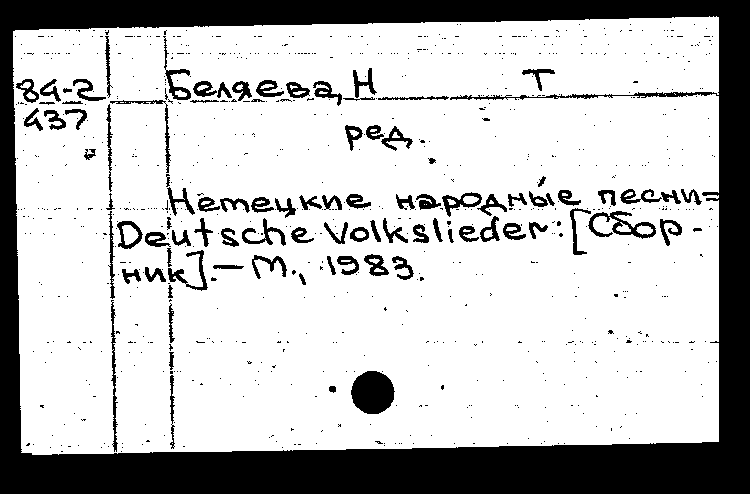 84-2 Беляева, Н Т
437
ред.
Немецкие народные песни=
Deutsche Volkslieder: [Сбор-
ник].—М., 1983.